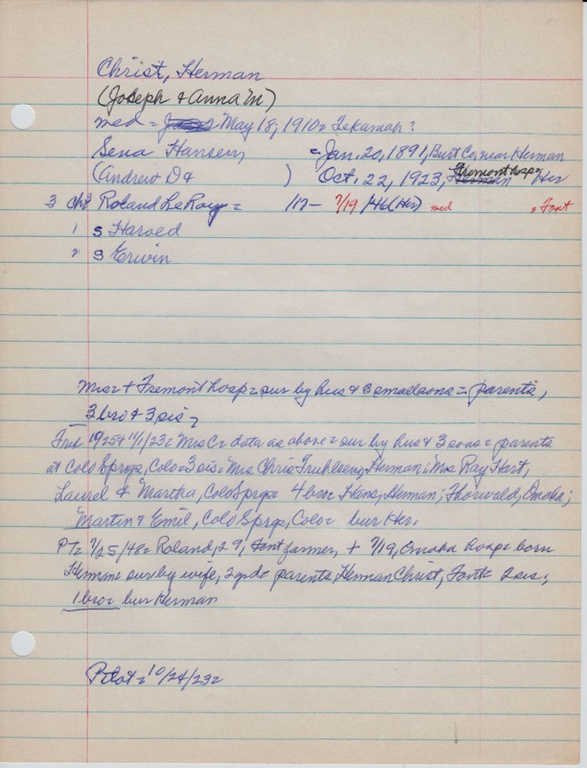 Christ, Herman
(Joseph & Anna M)
med = May 18, 1910 = Tekamah?
Sena Hansen, = Jan. 20, 1891, Burt Co near Herman
(Andrew D & ) Oct. 22, 1923, Fremont hosp = Her
3 ch: Roland LeRoy = 1917 - 7/19 1948 (Her) med = Font
1 s Harold
2 s Erwin
Mrs = + Fremont hosp = sur by hus & 3 small sons = parents,
3 bro & 3 sis =
10/25 & 11/1/23 = Mrs C = data as above = sur by hus & 3 sons = parents
at Colo Sprgs, Colo = 3 sis: Mrs Chris Truhlsen, Herman; Mrs Ray Hart,
Laurel & Martha, Colo Sprgs = 4 bro: Hans, Herman; Thorvald, Omaha;
Martin & Emil, Colo Sprgs, Colo = bur Her.
PT = 7/25/48 = Roland, 29, Font farmer, + 7/19, Omaha hosp = born
Herman = sur by wife, 2 parents, Herman Christ, Font = 2 sis;
1 bro = bur Herman
Pilot = 10/24/23 =